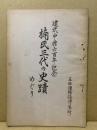 建武中興六百年記念
楠氏三代の史蹟
めぐり